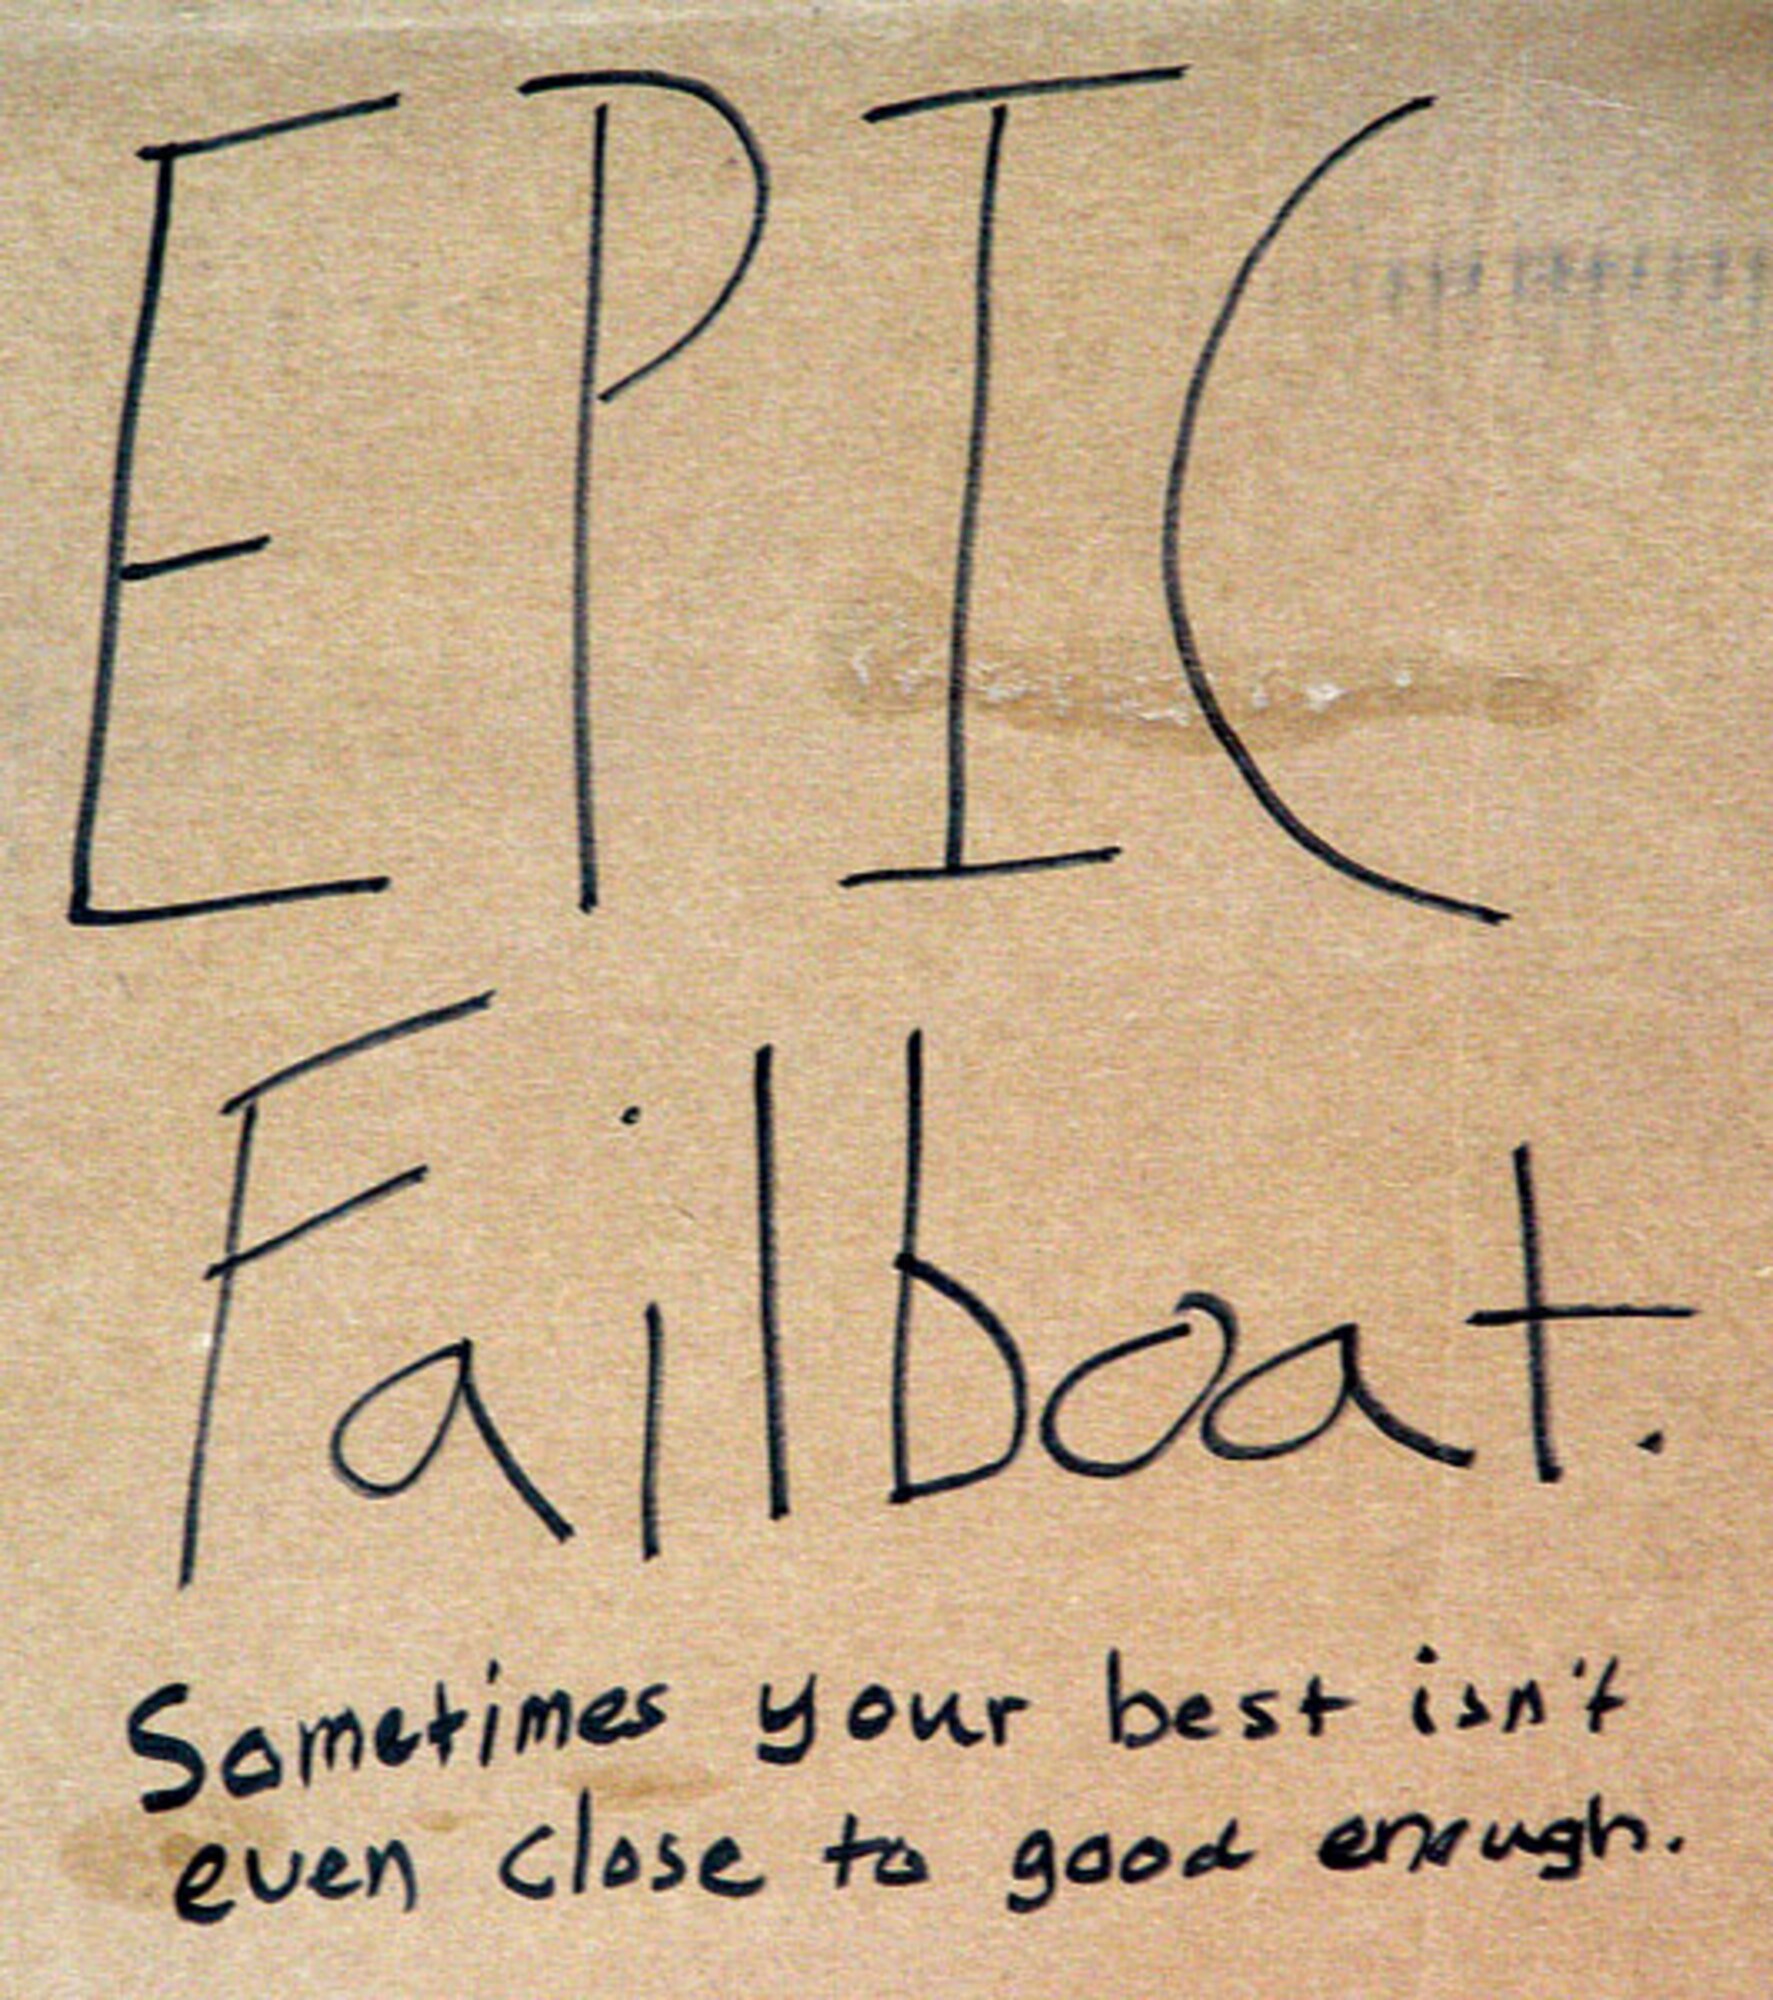 EPIC
Failboat.
Sometimes your best isn't
even close to good enough.